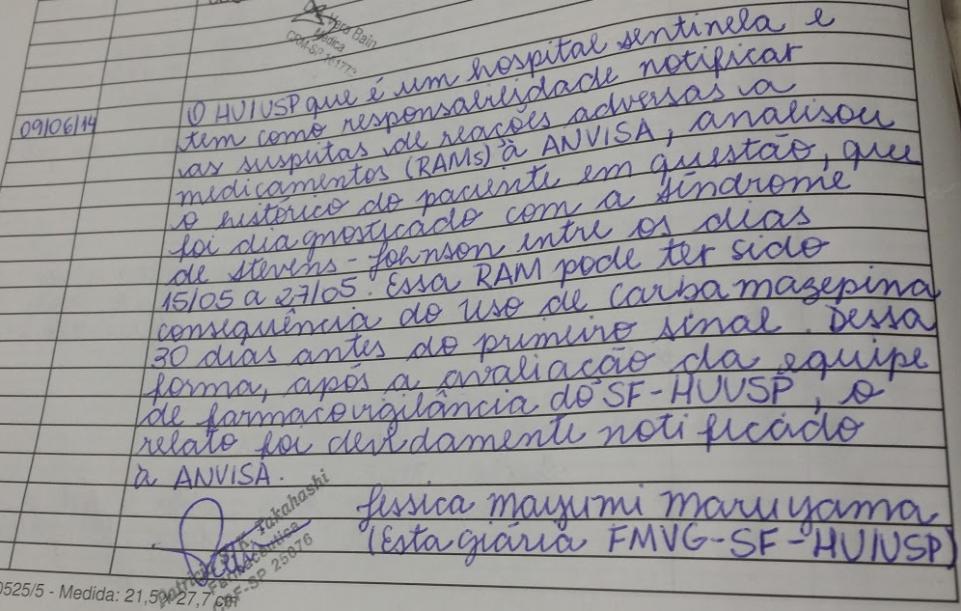 Yara Bain
Médica
CRM-SP
09/06/14
O HU/USP que é um hospital sentinela e
tem como responsabilidade notificar
as suspeitas de reações adversas a
medicamentos (RAMs) à ANVISA, analisou
o histórico do paciente em questão, que
foi diagnosticado com a síndrome
de Stevens-Johnson entre os dias
15/05 a 27/05. Essa RAM pode ter sido
consequência do uso de carbamazepina
30 dias antes do primeiro sinal. Dessa
forma, após a avaliação da equipe
de farmacovigilância do SF-HU/USP, o
relato foi devidamente notificado
à ANVISA.
Jessica Mayumi Maruyama
(Estagiária FMVG-SF-HU/USP)
Takahashi
Farmacêutica
CRF-SP 25076
0525/5 - Medida: 21,5 27,7 cm